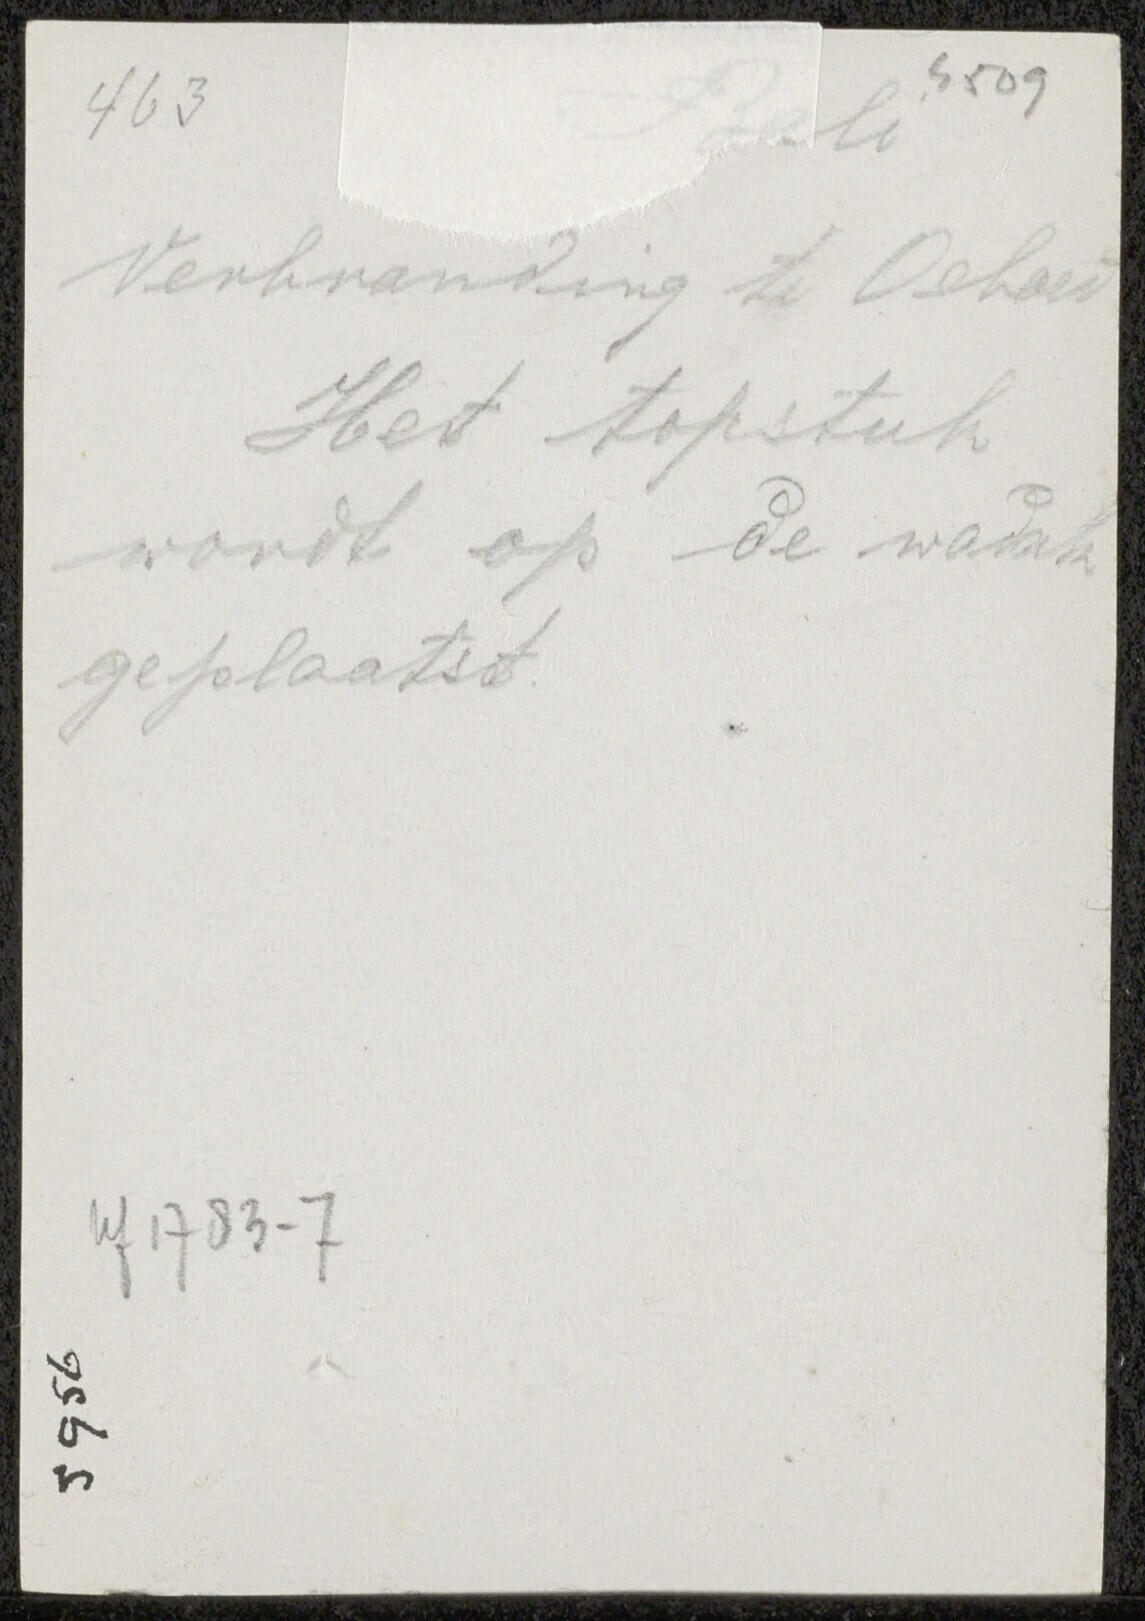 463
Bali
5509
Verbranding te Oeboed
Het topstuk
wordt op de wadah
geplaatst.
Wf 1783-7
5956